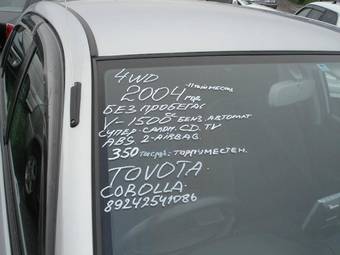 4WD
2004 год
БЕЗ ПРОБЕГА
V-1500 БЕНЗ. АВТОМАТ
СУПЕР-САЛОН.CD.TV
ABS 2-AIRBAG
350 ТЫС.РУБ. ТОРГ УМЕСТЕН.
TOYOTA
COROLLA.
89242541086